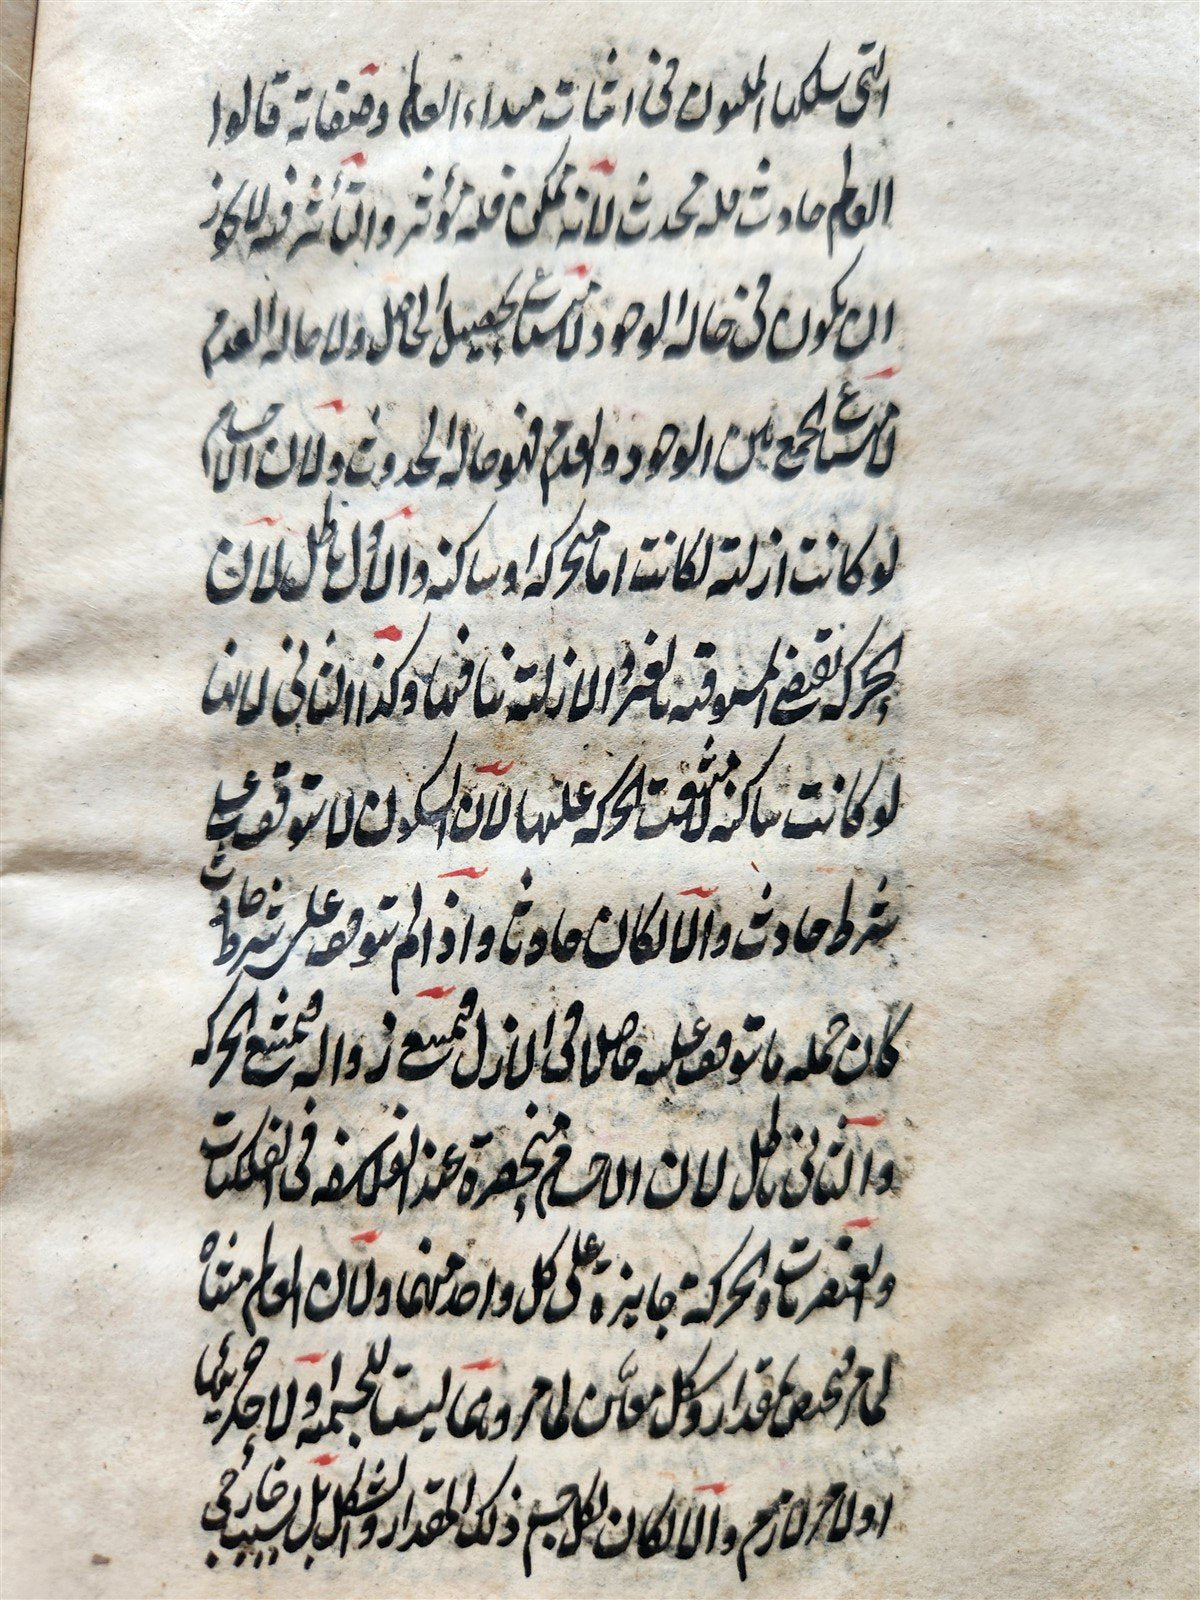 التي سلكها المليون في اثبات مبداء العالم وصفاته قالوا
العالم حادث فله محدث لانه ممكن فله مؤثر والتأثير فيه لا يجوز
ان يكون في حالة الوجود لامتناع تحصيل الحاصل ولا حاله العدم
لامتناع الجمع بين الوجود والعدم فهو حاله الحدوث ولان الاجسام
لو كانت ازلية لكانت اما متحركه او ساكنه والاول باطل لان
الحركه تقتضي المسبوقيه بالغير والازلية تنافيها وكذا الثاني لانها
لو كانت ساكنه لامتنعت الحركه عليها لان السكون لا يتوقف على
شرط حادث والا لكان حادثا واذا لم يتوقف على شرط حادث
كان جمله ما يتوقف عليه حاصلا في الازل فيمتنع زواله فيمتنع الحركه
والثاني باطل لان الاجسام منحصرة عند الفلاسفه في الفلكيات
والعنصريات والحركة جايزة على كل واحد منهما ولان العالم متناه
لما مر فيختص بمقدار وشكل معين لما مر وهما ليستا للجسمية ولا جزئيها
او لامر لازم والا لكان لكل جسم ذلك المقدار والشكل بل بسبب خارجي